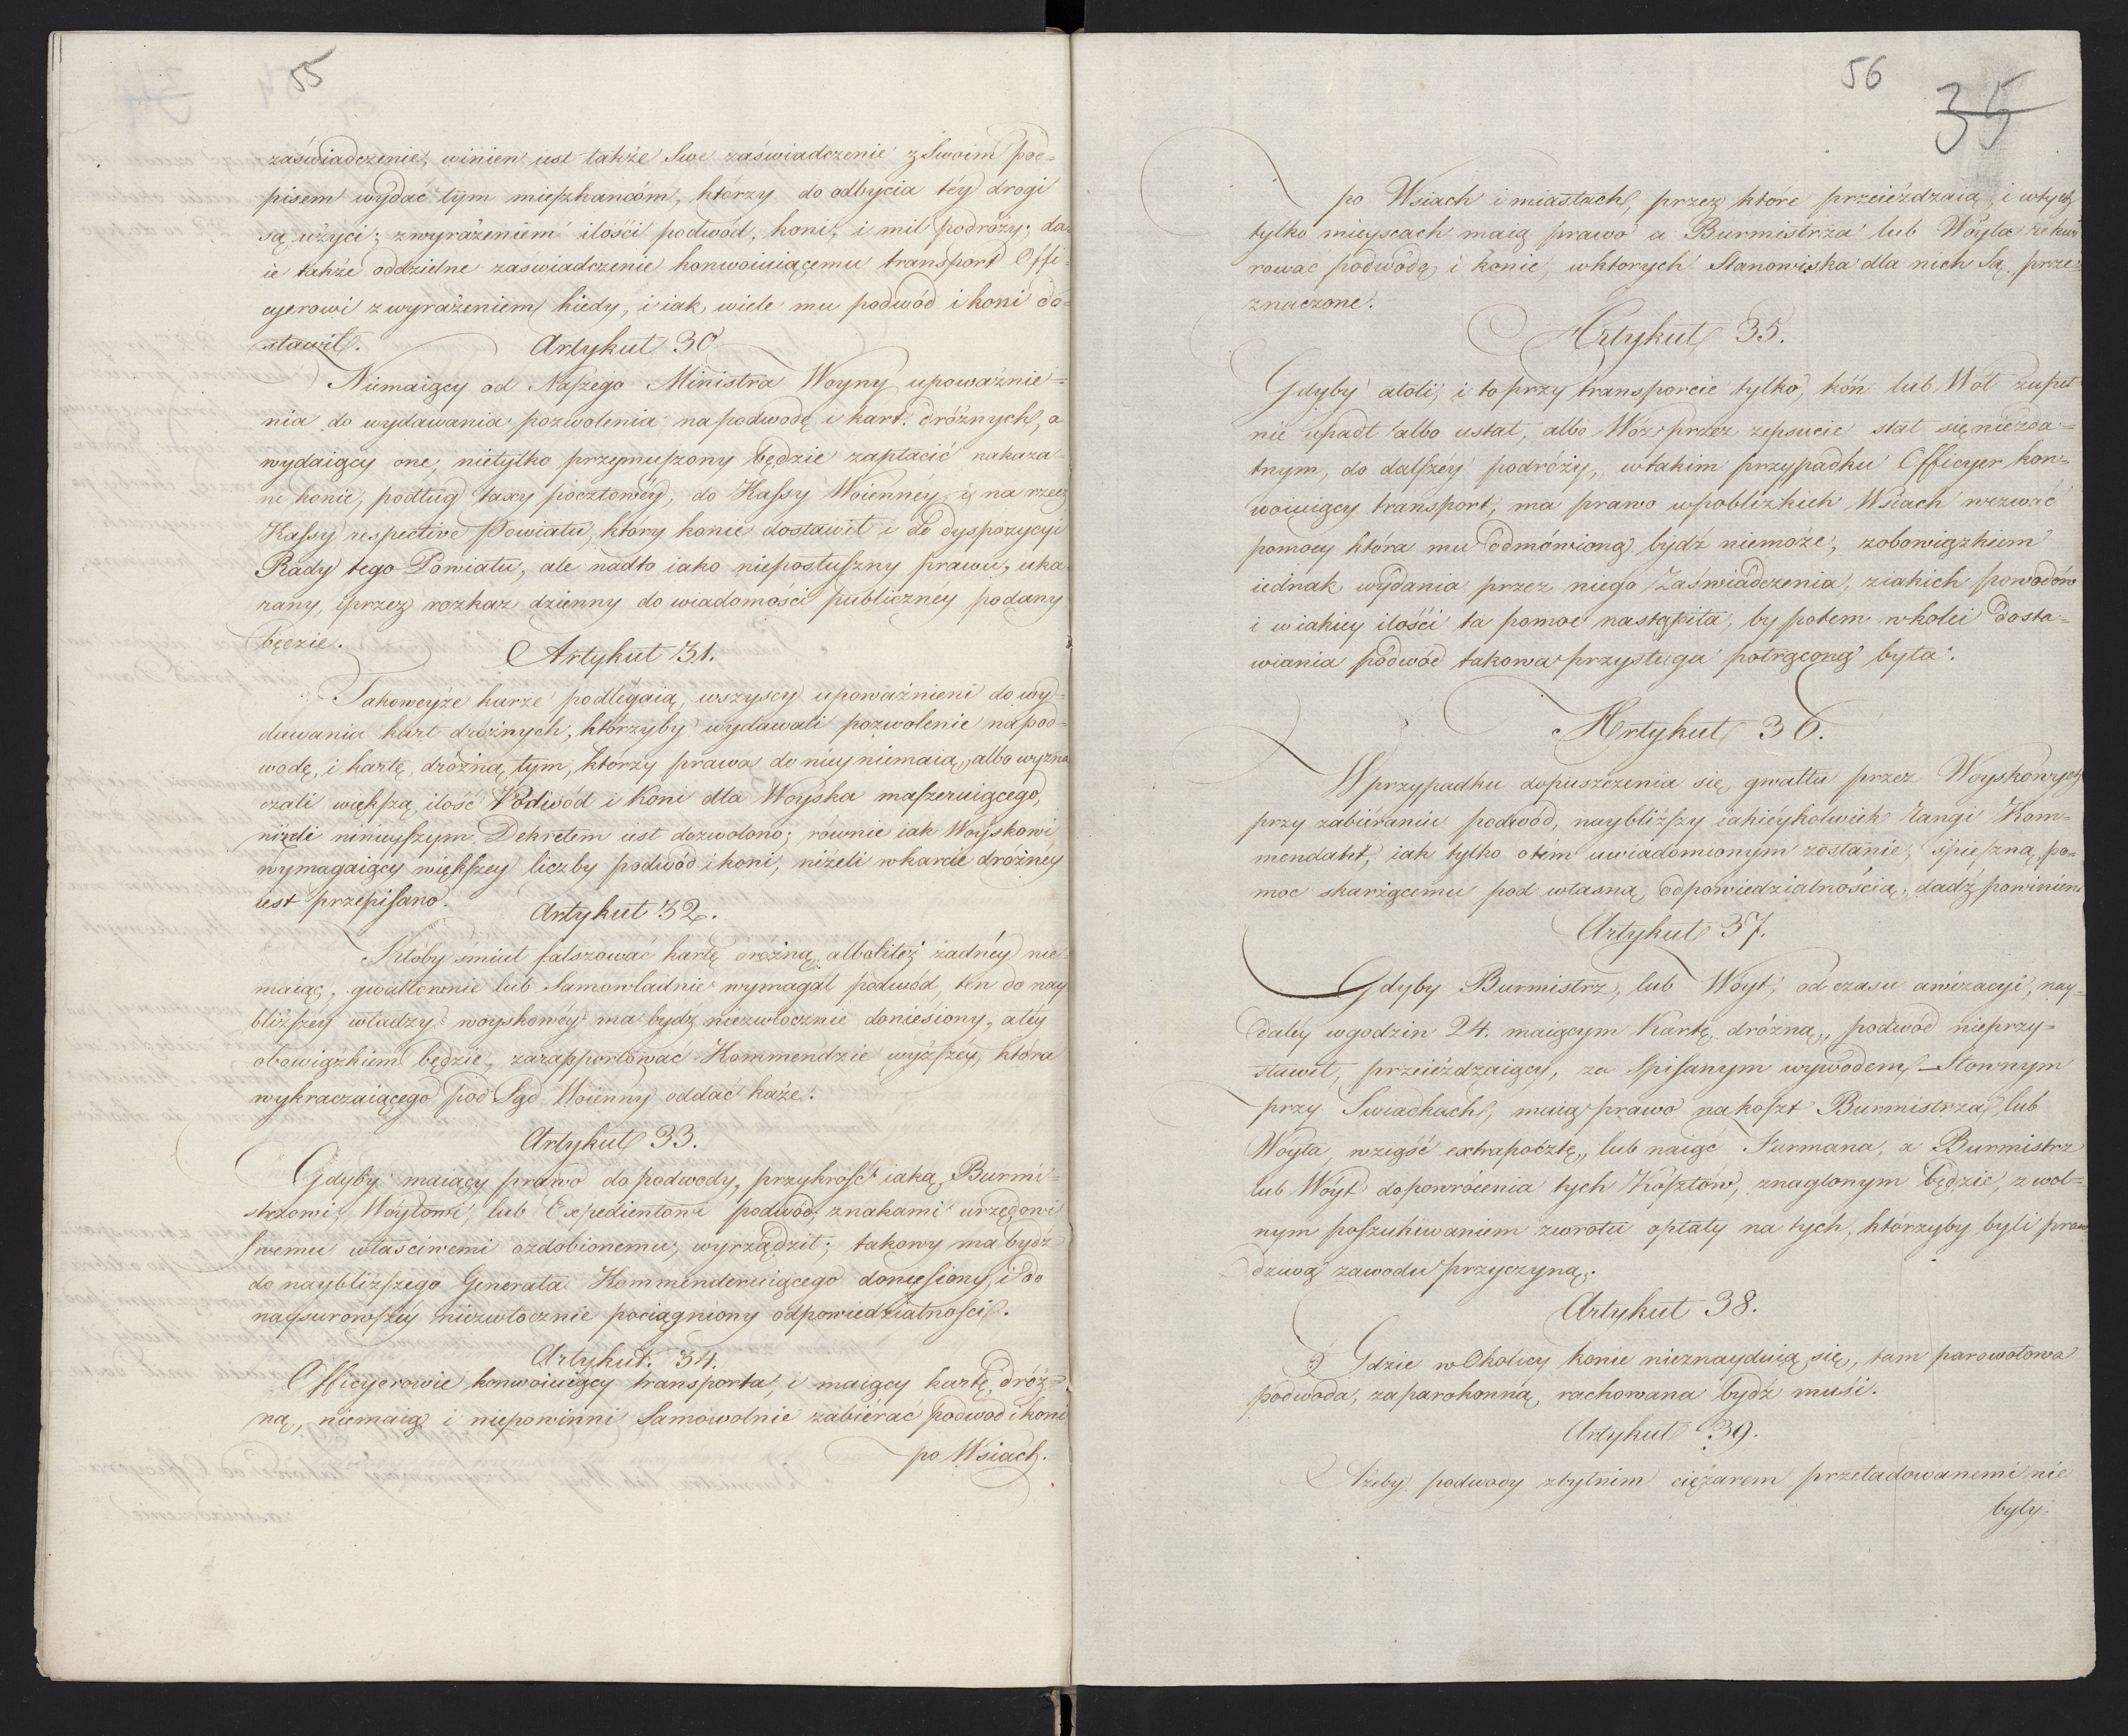 55
zaświadczenie, winien iest także Swe zaświadczenie z Swoim pod=
pisem wydać tym mieszkańcóm, którzy do odbycia téy drogi
są użyci; z wyrażeniem ilości podwód, koni, i mil podróży; da=
ie także oddzielne zaświadczenie konwoiuiącemu transport Offi=
cyerowi z wyrażeniem kiedy, i iak wiele mu podwód i koni do=
stawił.
Artykuł 30
Niemaiący od Naszego Ministra Woyny upoważnie=
nia do wydawania pozwolenia na podwodę i kart dróżnych, a
wydaiący one, nietylko przymuszony będzie zapłacić nakaza=
ne konie, podług taxy pocztowéy, do Kassy Woiennéy, i na rzecz
Kassy respective Powiatu, który konie dostawił i do dyspozycyi
Rady tego Powiatu, ale nadto iako nieposłuszny prawu, uka=
rany, i przez rozkaz dzienny do wiadomości publicznéy podany
będzie.
Artykuł 31.
Takoweyże karze podlegaią, wszyscy upoważnieni do wy=
dawania kart dróżnych, którzyby wydawali pozwolenie na pod=
wodę, i kartę dróżną tym, którzy prawa do niey niemaią, albo wyzna
czali większą ilość Podwód i Koni dla Woyska maszeruiącego,
niżeli ninieyszym Dekretem iest dozwolono; równie iak Woyskowi
wymagaiący większey liczby podwód i koni, niżeli w karcie dróżnéy
iest przepisano.
Artykuł 32.
Ktoby śmiał fałszować kartę dróżną, albolitéż żadnéy nie=
maiąc, gwałtownie lub Samowładnie wymagał podwód, ten do nay
bliższey władzy woyskowéy ma bydź niezwłocznie doniesiony, a téy
obowiązkiem będzie, zaraportować Kommendzie wyższéy, która
wykraczaiącego pod Sąd Woienny oddać każe.
Artykuł 33.
Gdyby maiący prawo do podwody, przykrość iaką Burmi=
strzowi, Woytowi, lub Expedientowi podwód, znakami urzędowi
swemu właściwemi ozdobionemu, wyrządził; takowy ma bydź
do naybliższego Generała Kommenderuiącego doniesiony, i do
naysurowszéy niezwłocznie pociągniony odpowiedzialności.
Artykuł. 34.
Officyerowie konwoiuiący transporta, i maiący kartę dróż=
ną, niemaią i niepowinni Samowolnie zabiérać podwod i koni
po Wsiach.
56
35
po Wsiach i miastach, przez które przeieżdzaią, i w tych
tylko mieyscach maią prawo u Burmistrza lub Woyta rekwi
rować podwodę i konie, w których Stanowiska dla nich są prze=
znaczone.
Artykuł 35.
Gdyby atoli, i to przy transporcie tylko, koń lub Wół zupeł
nie upadł albo ustał, albo Wóz przez zepsucie stał się niezda=
tnym, do dalszéy podróży, w takim przypadku Officyer kon=
woiuiący transport, ma prawo w poblizkich Wsiach wezwać
pomocy która mu odmówioną bydź niemoże, z obowiązkiem
iednak wydania przez niego Zaświadczenia, z iakich powodów
i w iakiey ilości ta pomoc nastąpiła, by potem w kolei dosta=
wiania podwód takowa przysługa potrąconą była.
Artykuł 36.
W przypadku dopuszczenia się gwałtu przez Woyskowych
przy zabiéraniu podwód, naybliższy iakiéykolwiek Rangi Kom=
mendant, iak tylko o tém uwiadomionym zostanie, śpieszną po=
moc skarżącemu pod własną odpowiedzialnością, dadź powinien
Artykuł 37.
Gdyby Burmistrz, lub Woyt, od czasu awizacyi, nay=
daléy w godzin 24. maiącym Kartę dróżną, podwód nieprzy=
stawił, przeieżdzaiący, za Spisanym wywodem Słownym
przy Swiadkach, maią prawo na koszt Burmistrza lub
Woyta, wziąść extrapocztę, lub naiąć Furmana, a Burmistrz
lub Woyt do powrócenia tych Kosztów, znaglonym będzie, z wol=
nym poszukiwaniem zwrotu opłaty na tych, którzyby byli praw
dziwą zawodu przyczyną.
Artykuł 38.
Gdzie w Okolicy konie nieznayduią się, tam parowołowa
podwoda, za parokonną rachowana bydź musi.
Artykuł 39.
Ażeby podwody zbytnim ciężarem przeładowanemi nie
były